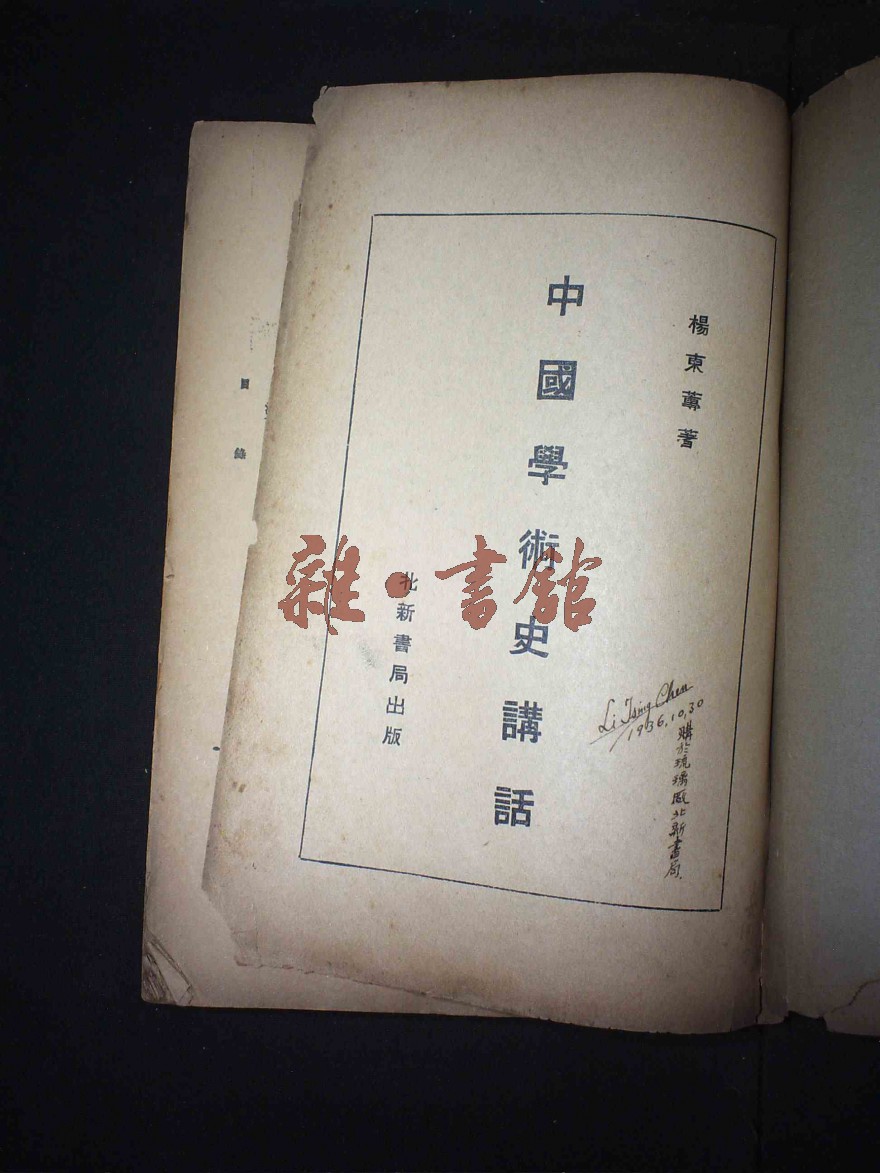 楊東蓴著
中國學術史講話
北新書局出版
Li Tsing Chen
1936.10.30
購於琉璃厰北新書局.
目錄
雜·書館